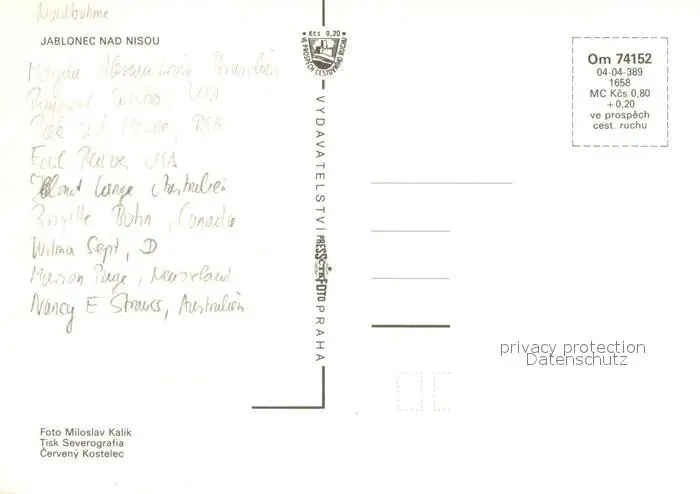 Nordböhme
JABLONEC NAD NISOU
Brasilien
Raymond, USA
RSA
Emil USA
Helmut Lange, Australien
Brigitte Bohn, Canada
Wilma Sept, D
Marion, Neuseeland
Nancy E Strauss, Australien
Foto Miloslav Kalík
Tisk Severografia
Červený Kostelec
Kčs 0,20
VE PROSPĚCH CESTOVNÍHO RUCHU
VYDAVATELSTVÍ PRESSFOTO PRAHA
ČTK
Om 74152
04-04-389
1658
MC Kčs 0,80
+0,20
ve prospěch
cest. ruchu
privacy protection
Datenschutz